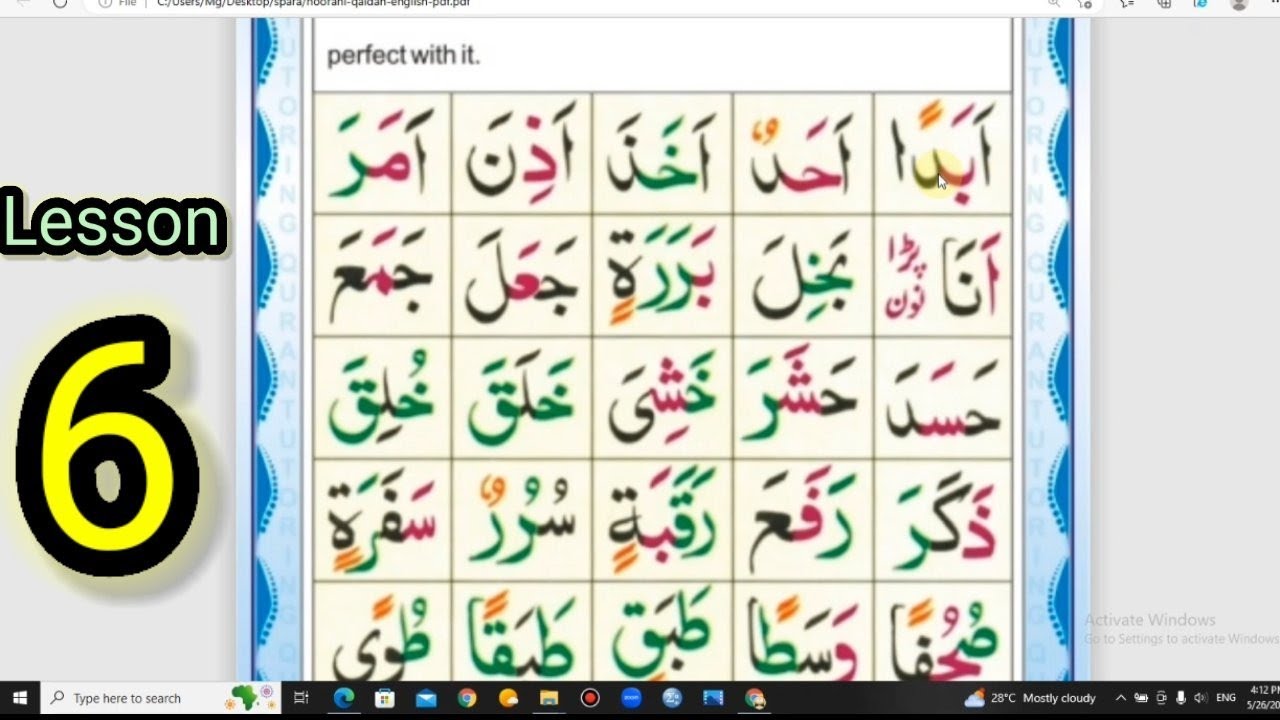 File | C:/Users/Mg/Desktop/spara/noorani-qaidah-english-pdf.pdf
perfect with it.
اَبَدًا اَحَدٌ اَخَذَ اَذِنَ اَمَرَ
اَنَا پڑا نون بَخِلَ بَرَرَةٍ جَعَلَ جَمَعَ
حَسَدَ حَشَرَ خَشِىَ خَلَقَ خُلِقَ
ذَكَرَ رَفَعَ رَقَبَةٍ سُرُرٌ سَفَرَةٍ
صُحُفًا وَسَطًا طَبَقٍ طَبَقًا طُوًى
Lesson
6
TUTORING QURAN TUTORING Q
TUTORING QURAN TUTORING Q
Activate Windows
Go to Settings to activate Windows
Type here to search
zoom
28°C Mostly cloudy
ENG
4:12 P
5/26/20